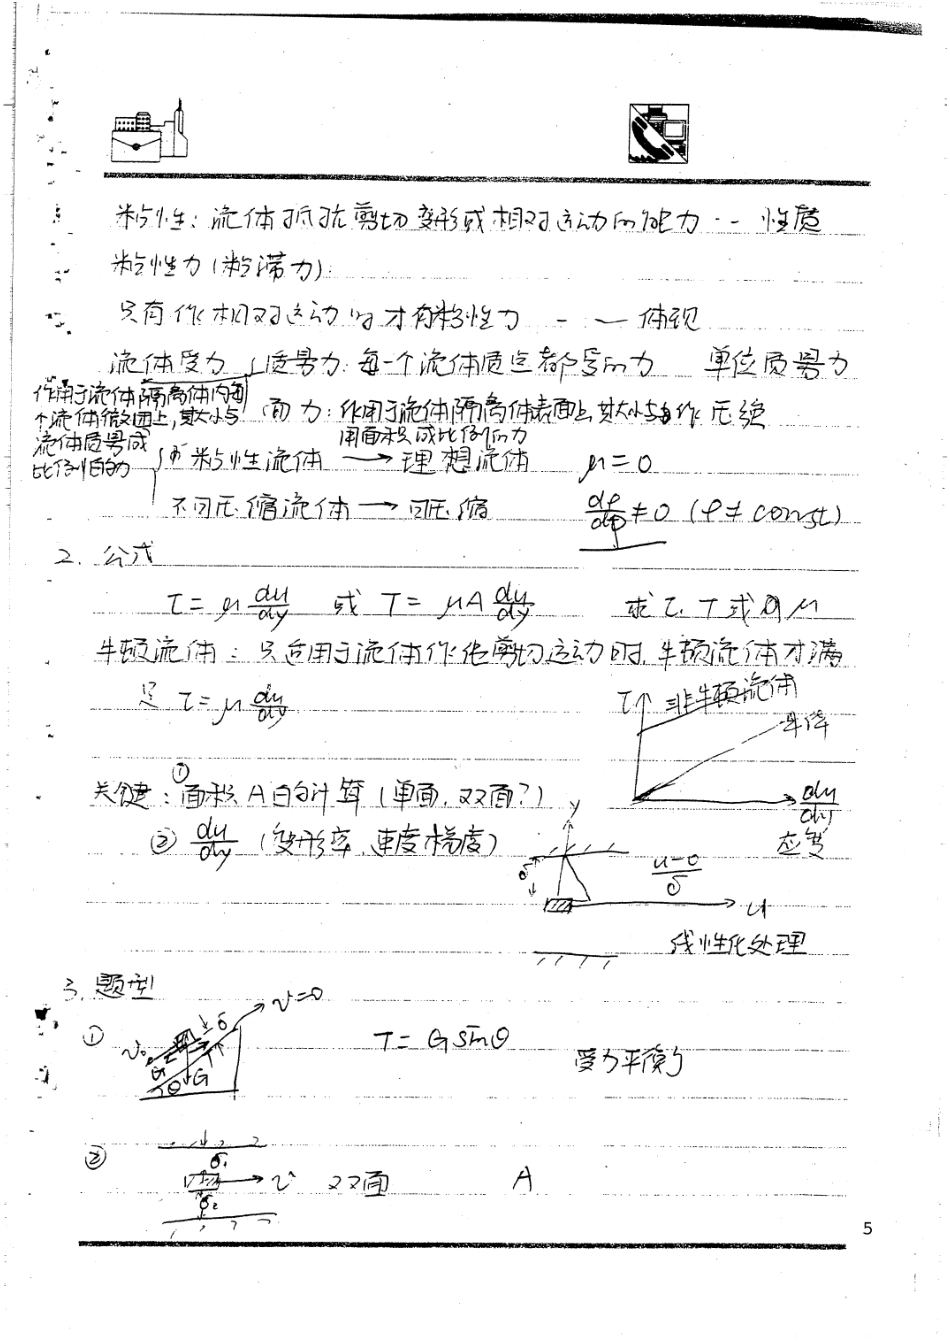 粘性：流体抵抗剪切变形或相对运动的能力 -- 性质
粘性力（粘滞力）：
只有作相对运动时才有粘性力 -- 体现
流体受力 { 质量力：每一个流体质点都受的力 单位质量力
作用于流体隔离体内每个流体微团上，其大小与流体质量成比例的力
面力：作用于流体隔离体表面上，其大小与作用面积成比例的力 压强
粘性流体 → 理想流体 μ=0
不可压缩流体 → 可压缩 dρ/dp ≠ 0 (ρ ≠ const)
2. 公式
τ = μ du/dy 或 T = μA du/dy 求 τ、T 或 μ
牛顿流体：只适用于流体作剪切运动时，牛顿流体才满
足 τ = μ du/dy
τ 非牛顿流体
牛
du/dy
应变
关键：① 面积A的计算（单面，双面？）
② du/dy （变形率、速度梯度）
y
δ
u-0/δ
u
线性化处理
3. 题型
① v=0
δ
v₀
G
θ
G
T = G sinθ 受力平衡
② δ₁
v 双面 A
δ₂
5